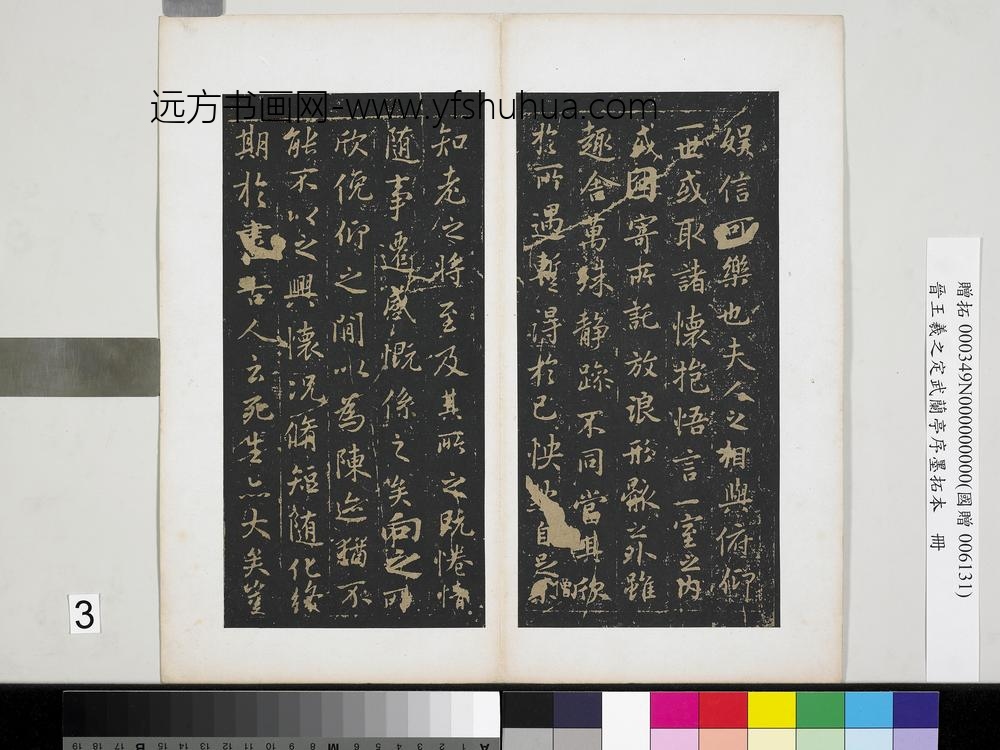 远方书画网-www.yfshuhua.com
娱信可樂也夫人之相與俯仰
一世或取諸懷抱悟言一室之内
或因寄所託放浪形骸之外雖
趣舍萬殊静躁不同當其欣
於所遇暫得於己怏然自足不
知老之將至及其所之既惓情
随事遷感慨係之矣向之所
欣俛仰之間以為陳迹猶不
能不以之興懷況脩短随化終
期於盡古人云死生亦大矣豈
僧
贈拓 000349N000000000(國贈 006131)
晉王羲之定武蘭亭序墨拓本 冊
3
19 18 17 16 15 14 13 12 11 10 9 8 7 6 5 4 3 2 1
B M A